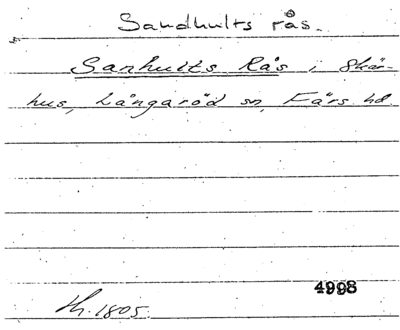 Sandhults rås.
Sanhults Rås i Skär-
hus, Långaröd sn, Färs hd.
4998
Th. 1805.